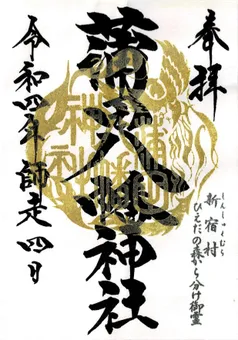 奉拝
しんしゅくむら
新宿村
ひえだの森から分け御霊
蒲田八幡神社
令和四年 師走 四日